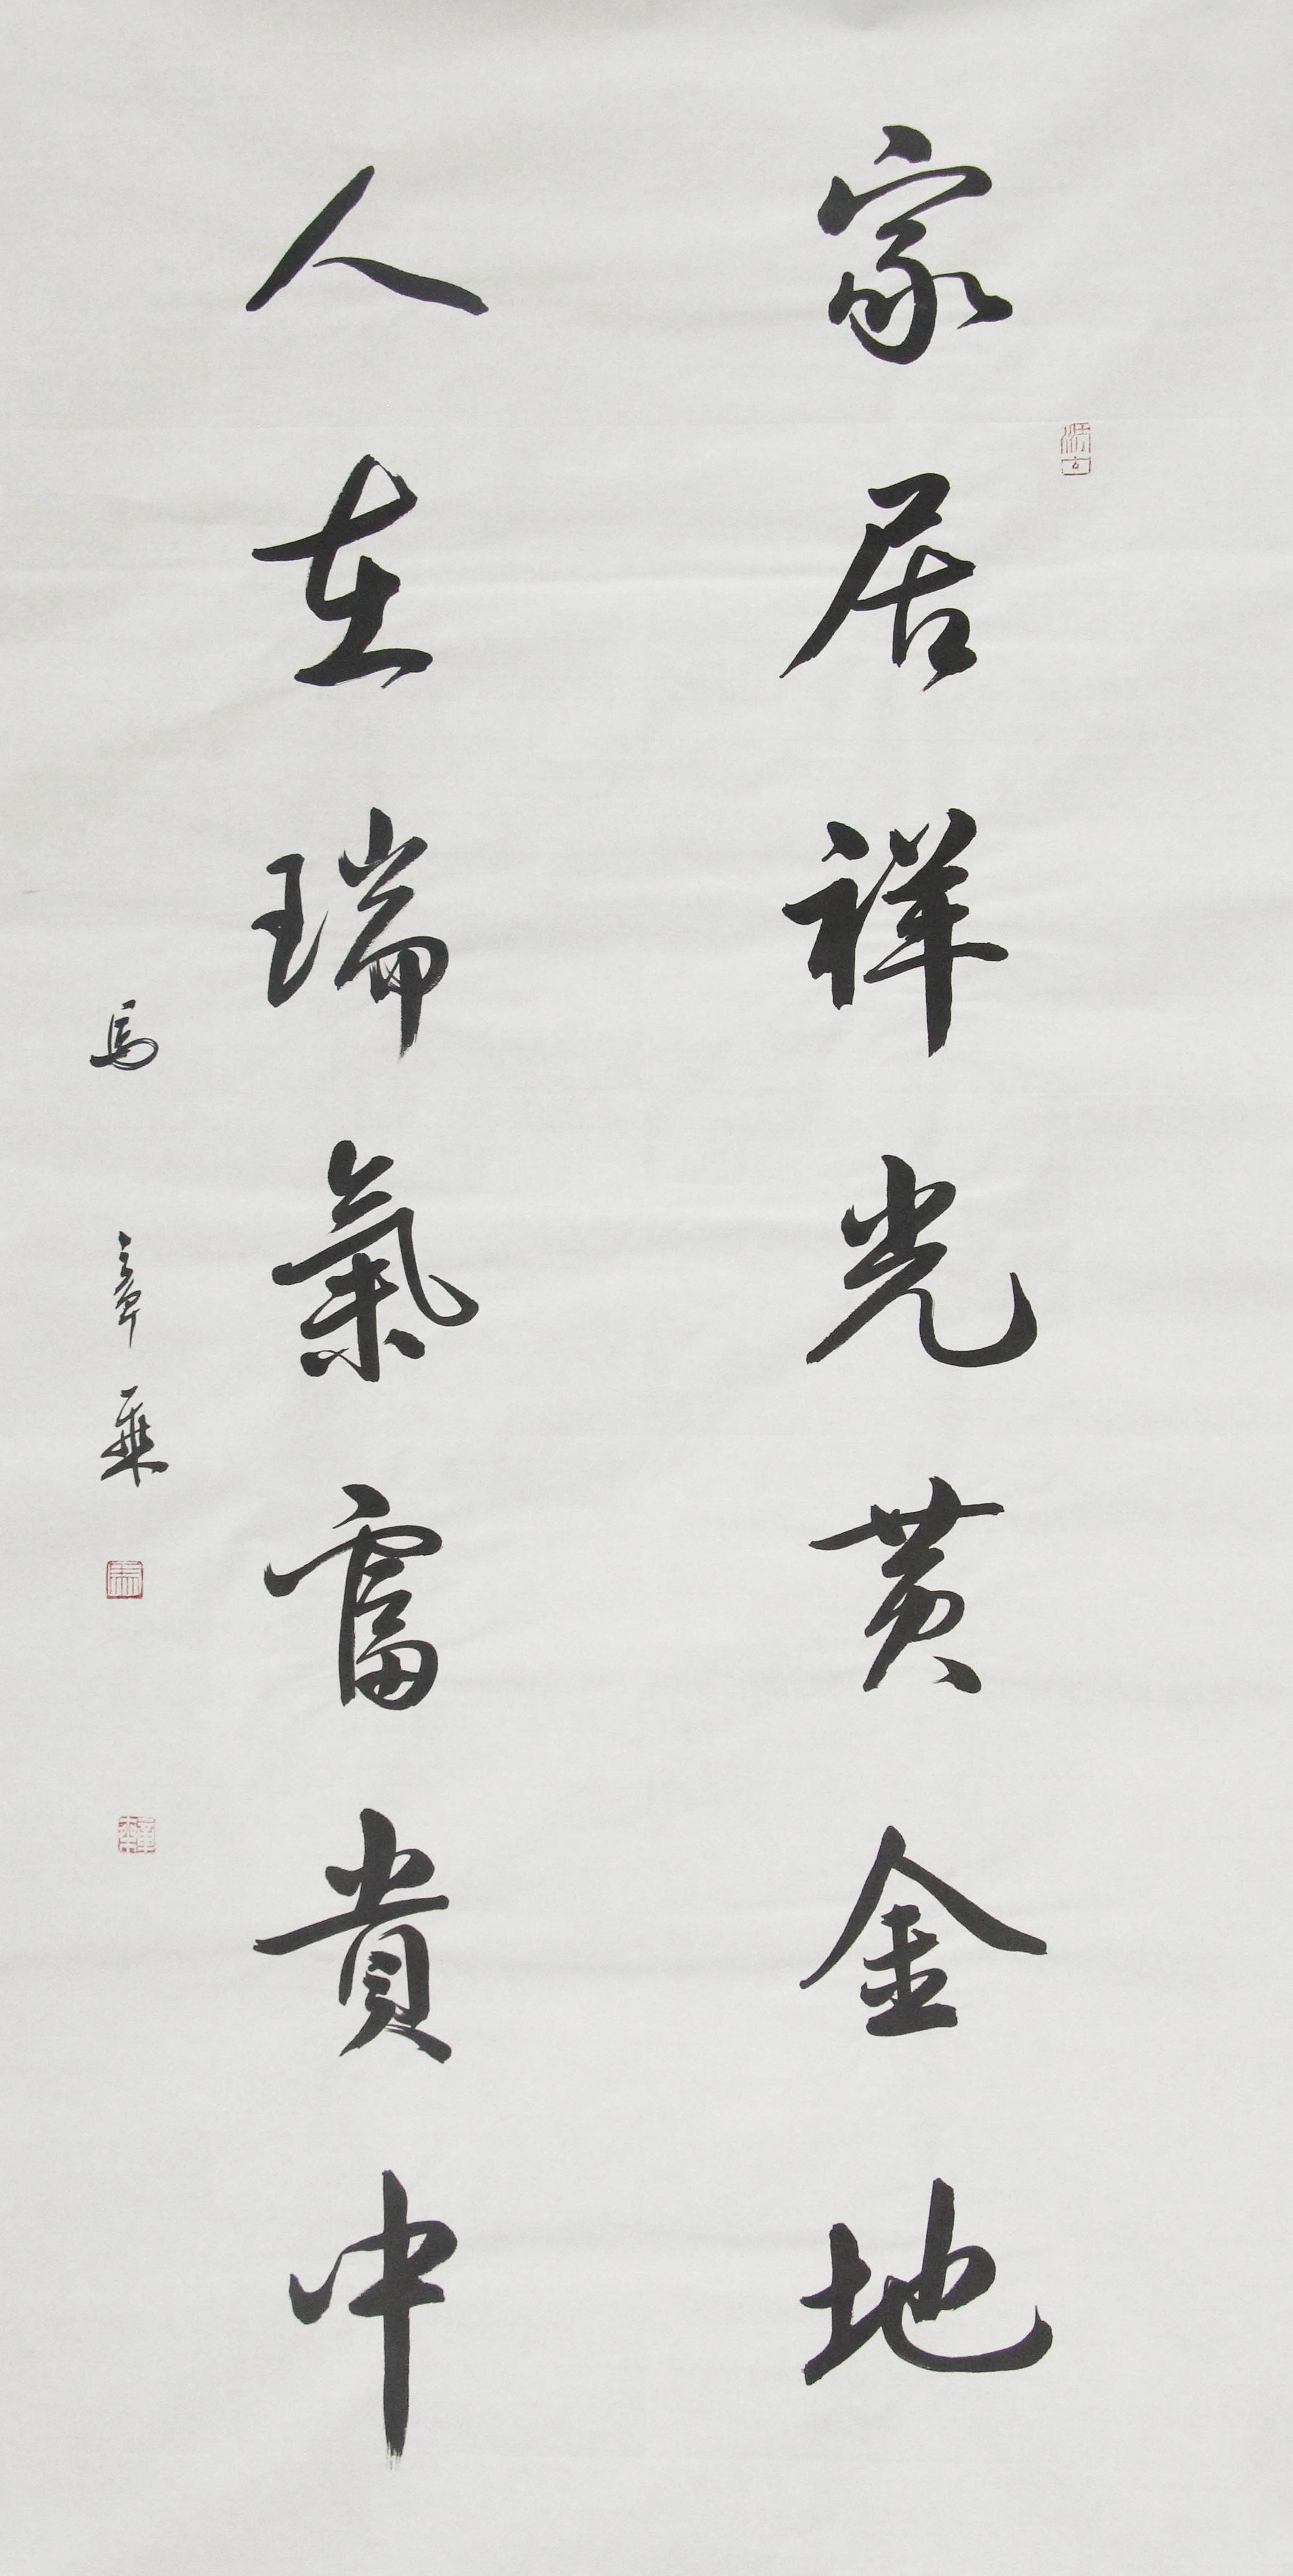 家居祥光黄金地
人在瑞氣富貴中
馬章乘